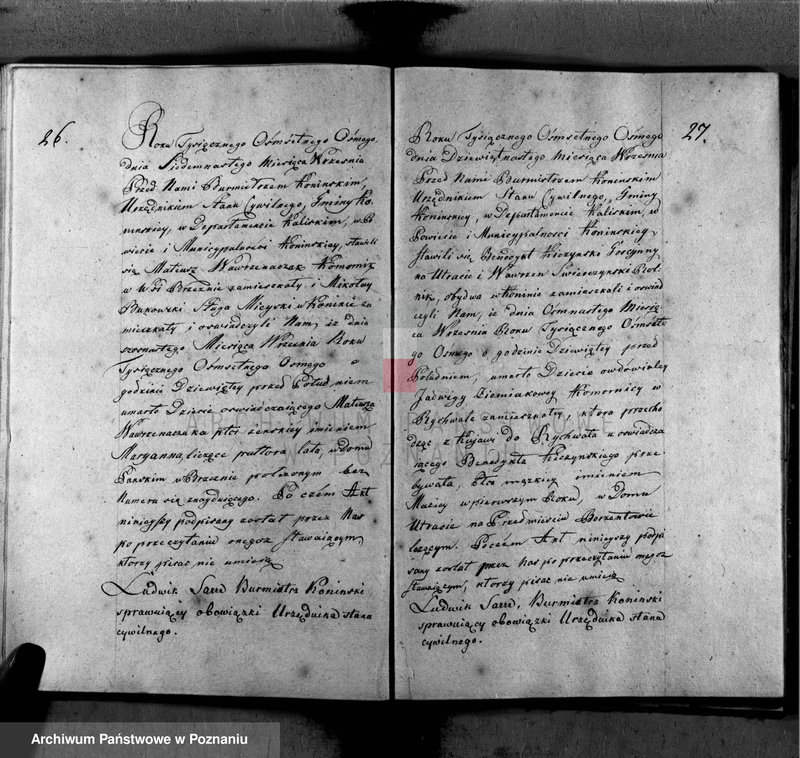 26.
Roku Tysiącznego Ośmsetnego Osmego
dnia Siedemnastego Miesiąca Września
Przed Nami Burmistrzem Konińskim,
Urzędnikiem Stanu Cywilnego, Gminy Ko
ninskiey, w Departamencie Kaliskim, w Po
wiecie i Municypalnosci Konińskiey, stawili
się Mateusz Wawrzenaczak Komornik
w Wsi Brzeznie zamieszkały i Mikołay
Bukowski Sługa Mieyski w Koninie za
mieszkały i oswiadczyli Nam, iż dnia
szesnastego Miesiąca Września Roku
Tysiącznego Osmsetnego Osmego o
godzinie Dziewiątey przed Południem
umarło Dziecie oswiadczaiącego Mateusza
Wawrzenaczaka płci żenskiey imieniem
Maryanna, liczące pułtora lata, w domu
Pańskim w Brzeznie położonym bez
Numera się znayduiącego. Po czém Akt
ninieyszy podpisany został przez Nas
po przeczytaniu onegoż stawaiącym,
ktorzy pisać nie umieią
Ludwik Sare Burmistrz Koninski
sprawuiący obowiązki Urzędnika stanu
cywilnego.
27.
Roku Tysiącznego Osmsetnego Osmego
dnia Dziewiątnastego Miesiąca Września
Przed Nami Burmistrzem Konińskim
Urzędnikiem Stanu Cywilnego, Gminy
Koninskiey, w Departamencie Kaliskim, w
Powiecie i Municypalnosci Koninskiey,
stawili się Benedykt Kiczynski Goscinny
na Utracie i Wawrzen Swierczynski Rol
nik, obydwa w Koninie zamieszkali i oswiad
czyli Nam, iż dnia Osmnastego Miesią
ca Września Roku Tysiącznego Osmset
go Osmego o godzinie Dziewiątey przed
Południem, umarło Dziecie owdowiałey
Jadwigi Ziemiakowey Komornicy w
Rychwale zamieszkałey, która przecho
dząc z Kujaw do Rychwała u oswiadcza
iącego Benedykta Kiczynskiego prze
bywała, płci męzkiey imieniem
Maciey w pierwszym Roku, w Domu
Utracie na Przedmieściu
leżącym. Poczém Akt ninieyszy podpi
sany został przez nas po przeczytaniu onegoż
stawaiącym, ktorzy pisać nie umieią
Ludwik Sare, Burmistrz Koninski
sprawuiący obowiązki Urzędnika stanu
cywilnego.
Archiwum Państwowe w Poznaniu